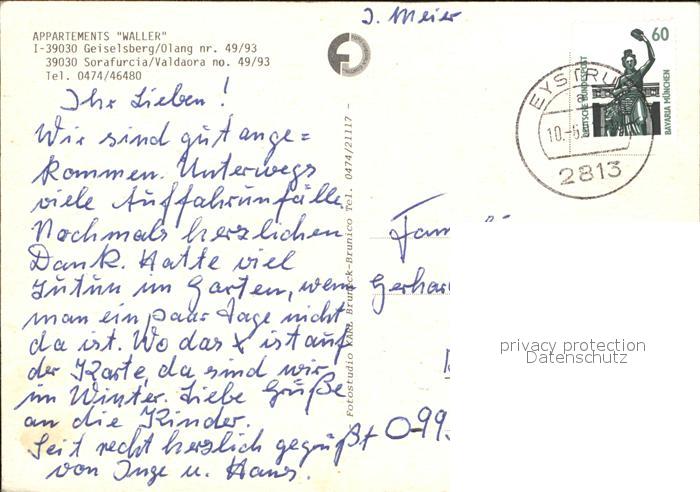 J. Meier
APPARTEMENTS "WALLER"
I-39030 Geiselsberg/Olang nr. 49/93
39030 Sorafurcia/Valdaora no. 49/93
Tel. 0474/46480
Ihr Lieben!
Wir sind gut ange=
kommen. Unterwegs
viele Auffahrunfälle
Nochmals herzlichen
Dank. Hatte viel
zutun im Garten, wenn
man ein paar Tage nicht
da ist. Wo das x ist auf
der Karte, da sind wir
im Winter. Liebe Grüße
an die Kinder.
Seit recht herzlich gegrüßt
von Inge u. Hans.
Fotostudio KARL Bruneck-Brunico Tel. 0474/21117 -
60
DEUTSCHE BUNDESPOST
BAYARIA MÜNCHEN
EYSTRU
a
10.-6.
2813
Fam
Gerhar
O-99
privacy protection
Datenschutz